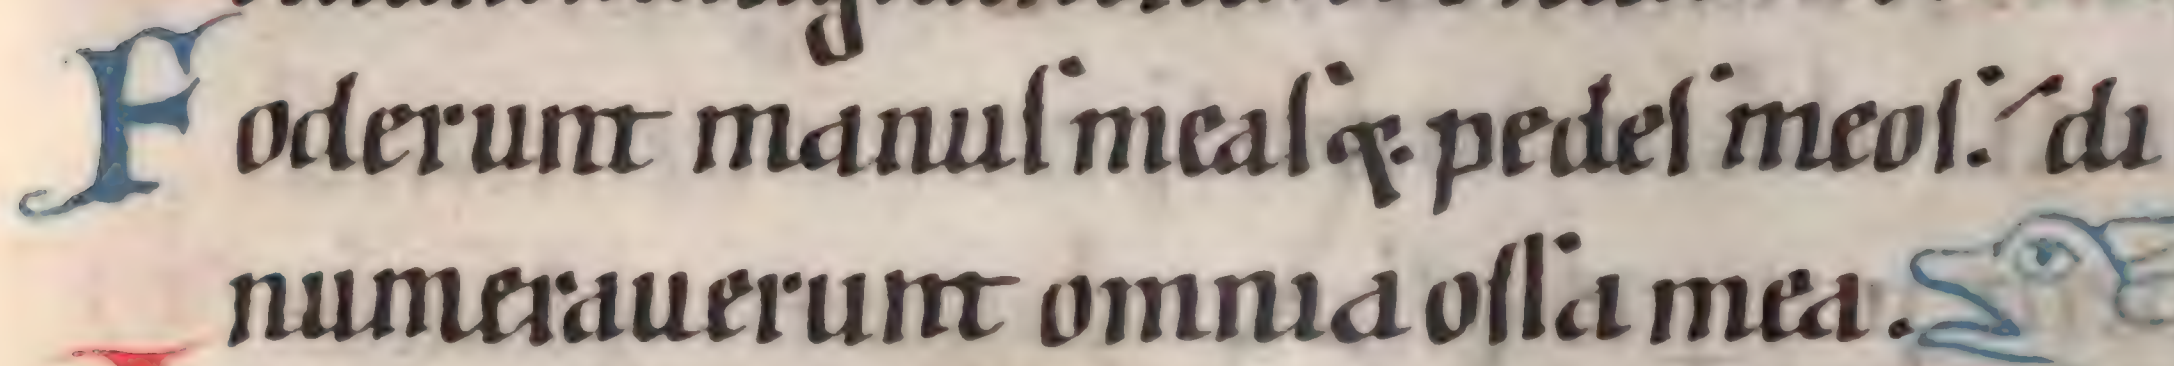 Foderunt manuſ meaſ & pedeſ meoſ. di
numerauerunt omnia oſſa mea.